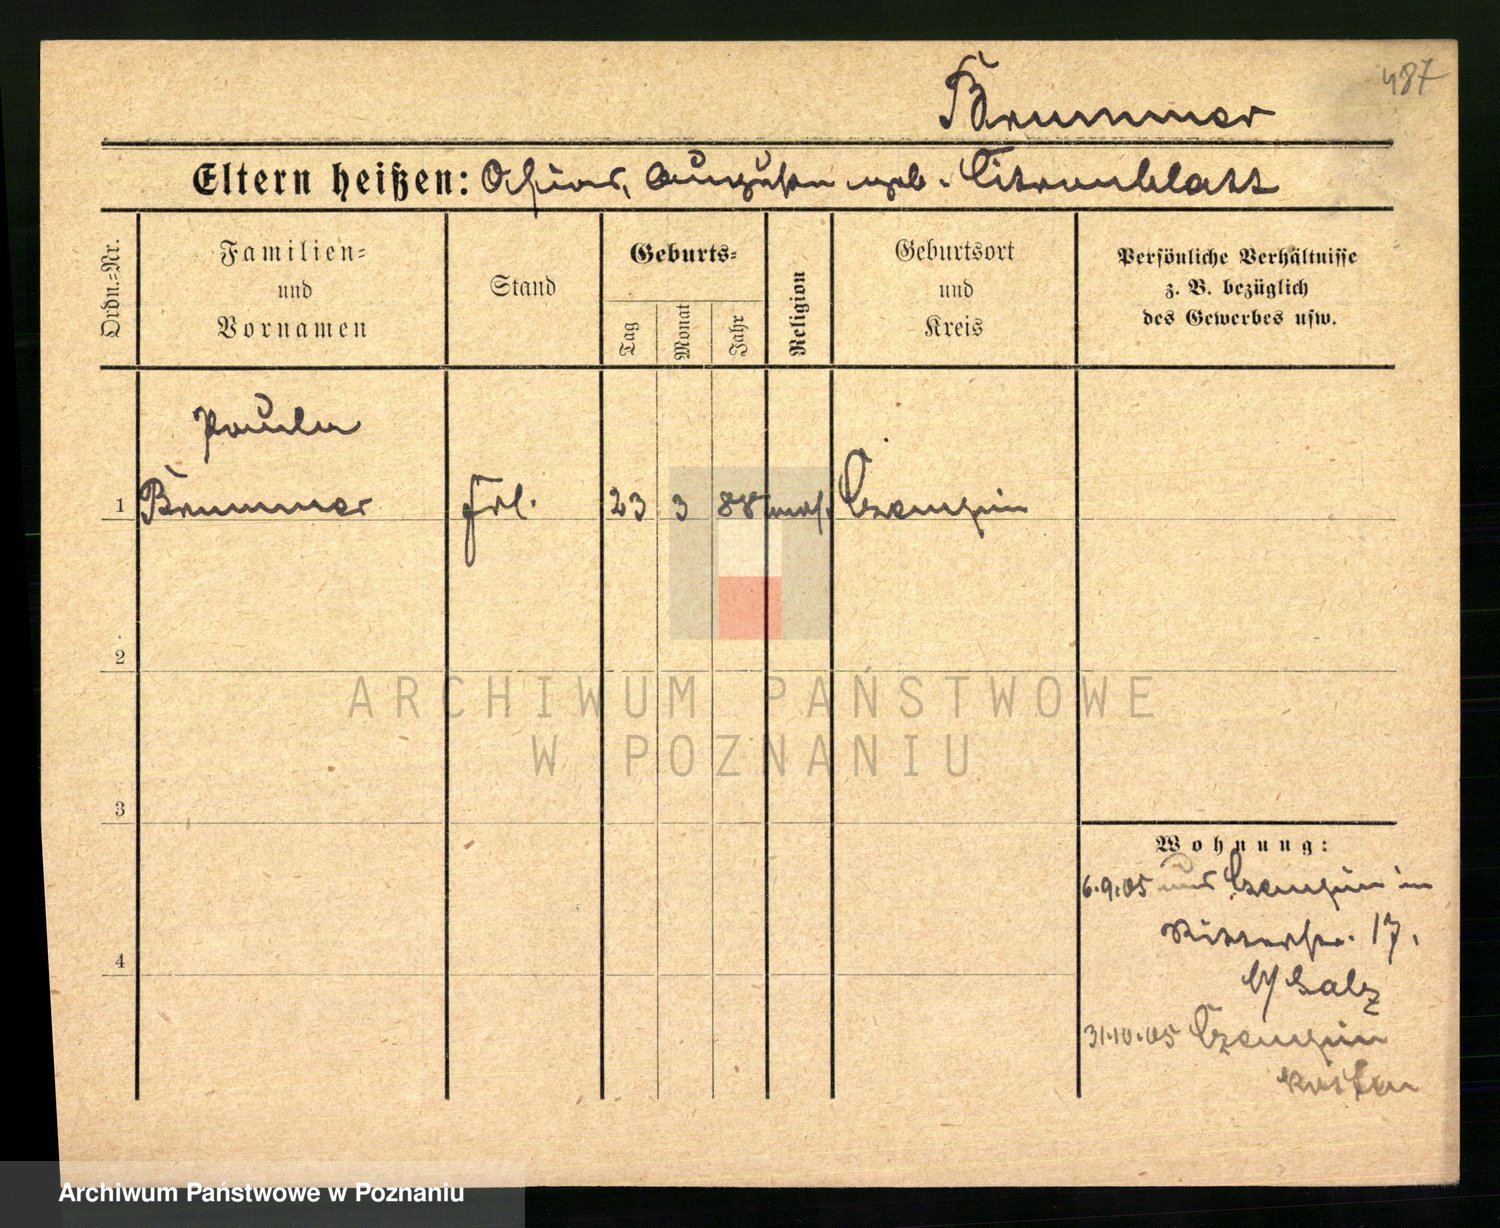 487
Brummer
Eltern heißen: Auguste geb. Citronblatt
Ordn.-Nr.
Familien-
und
Vornamen
Stand
Geburts-
Tag
Monat
Jahr
Religion
Geburtsort
und
Kreis
Persönliche Verhältnisse
z. B. bezüglich
des Gewerbes usw.
Paula
1 Brummer Frl. 23 3 88 mos. Czempin
2
3
4
Wohnung:
6.9.05 aus Czempin in
Ritterstr. 17.
b/ Salz
31.10.05 Czempin
Kosten
ARCHIWUM PAŃSTWOWE
W POZNANIU
Archiwum Państwowe w Poznaniu